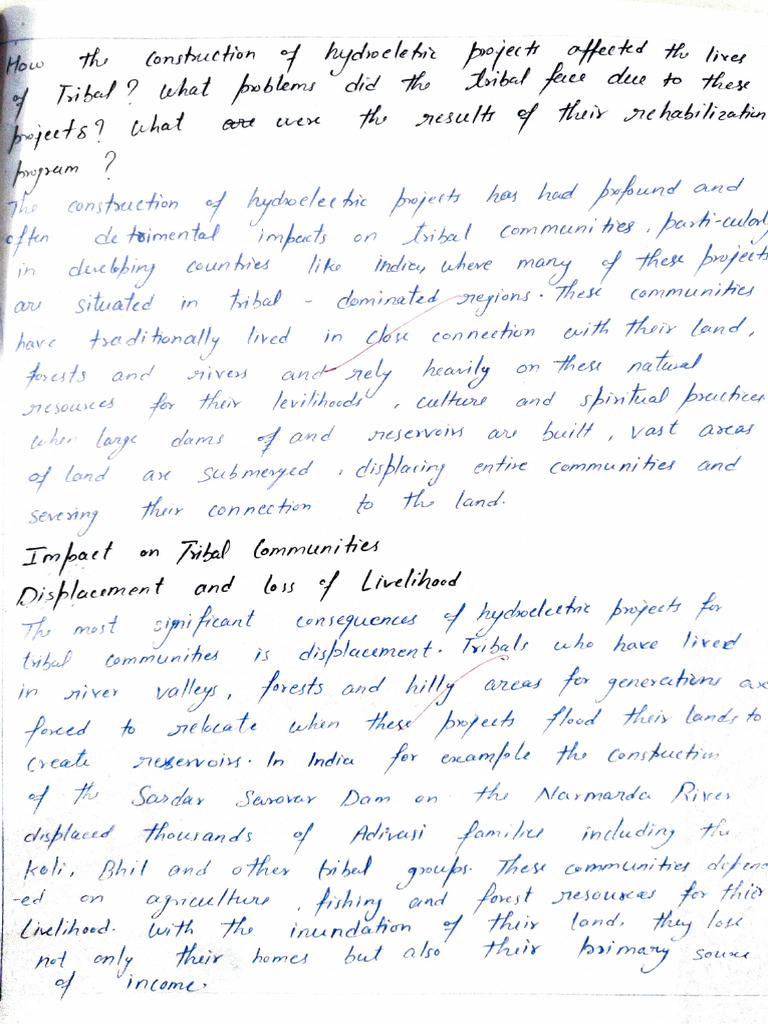 How the construction of hydroeletric projects affected the lives
of Tribal? What problems did the tribal face due to these
projects? What are were the results of their rehabilization
program ?
The construction of hydroelectric projects has had profound and
often detrimental impacts on tribal communities, parti-cularly
in developing countries like India, where many of these projects
are situated in tribal - dominated regions. These communities
have traditionally lived in close connection with their land,
forests and rivers and rely heavily on these natural
resources for their levilihoods, culture and spiritual practices
when large dams of and reservoirs are built, vast areas
of land are submerged, displacing entire communities and
severing their connection to the land.
Impact on Tribal Communities
Displacement and loss of Livelihood
The most significant consequences of hydroelectric projects for
tribal communities is displacement. Tribals who have lived
in river valleys, forests and hilly areas for generations are
forced to relocate when these projects flood their lands to
create reservoirs. In India for example the construction
of the Sardar Sarovar Dam on the Narmarda River
displaced thousands of Adivasi families including the
Koli, Bhil and other tribal groups. These communities depend
-ed on agriculture, fishing and forest resources for thier
Livelihood. With the inundation of their land, they lose
not only their homes but also their primary source
of income.